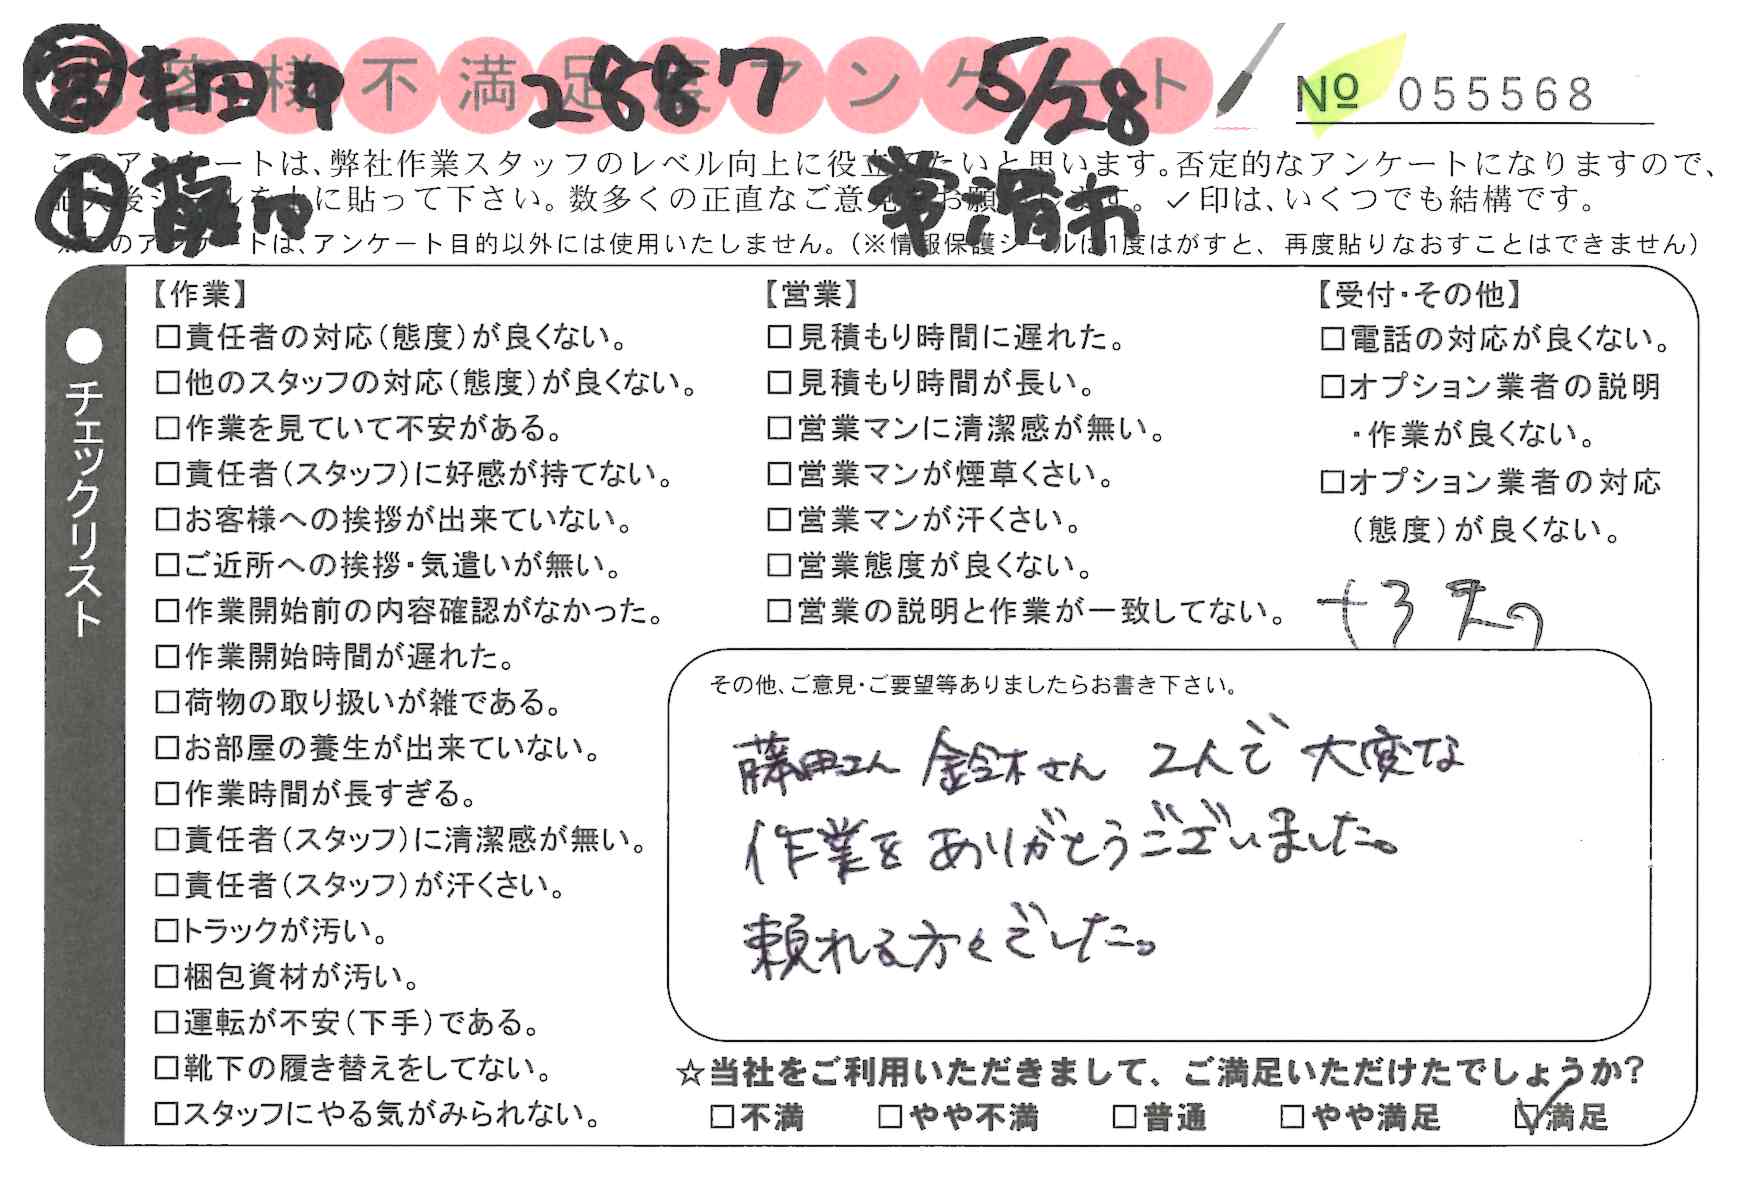 お客様不満足度アンケート
2887
5/28
№ 055568
このアンケートは、弊社作業スタッフのレベル向上に役立てたいと思います。否定的なアンケートになりますので、
記入後シールを上に貼って下さい。数多くの正直なご意見をお願いします。✓印は、いくつでも結構です。
常滑市
※このアンケートは、アンケート目的以外には使用いたしません。(※情報保護シールは1度はがすと、再度貼りなおすことはできません)
●チェックリスト
【作業】
□責任者の対応(態度)が良くない。
□他のスタッフの対応(態度)が良くない。
□作業を見ていて不安がある。
□責任者(スタッフ)に好感が持てない。
□お客様への挨拶が出来ていない。
□ご近所への挨拶・気遣いが無い。
□作業開始前の内容確認がなかった。
□作業開始時間が遅れた。
□荷物の取り扱いが雑である。
□お部屋の養生が出来ていない。
□作業時間が長すぎる。
□責任者(スタッフ)に清潔感が無い。
□責任者(スタッフ)が汗くさい。
□トラックが汚い。
□梱包資材が汚い。
□運転が不安(下手)である。
□靴下の履き替えをしてない。
□スタッフにやる気がみられない。
【営業】
□見積もり時間に遅れた。
□見積もり時間が長い。
□営業マンに清潔感が無い。
□営業マンが煙草くさい。
□営業マンが汗くさい。
□営業態度が良くない。
□営業の説明と作業が一致してない。
【受付・その他】
□電話の対応が良くない。
□オプション業者の説明
・作業が良くない。
□オプション業者の対応
(態度)が良くない。
その他、ご意見・ご要望等ありましたらお書き下さい。
藤田さん 鈴木さん 2人で大変な
作業をありがとうございました。
頼れる方々でした。
☆当社をご利用いただきまして、ご満足いただけたでしょうか?
□不満 □やや不満 □普通 □やや満足 ☑満足